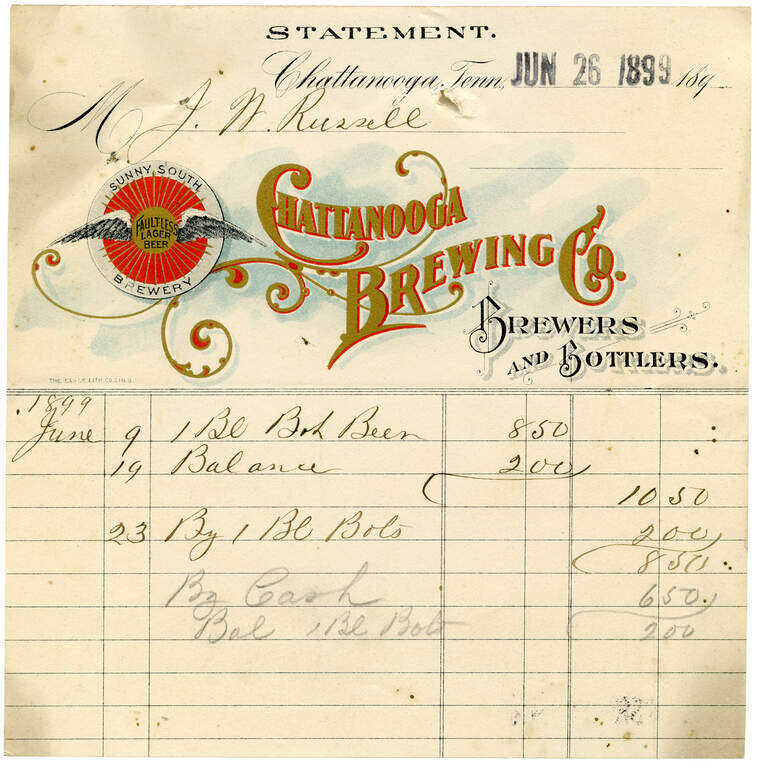 STATEMENT.
Chattanooga, Tenn, JUN 26 1899 189
M J. W. Russell
SUNNY SOUTH
FAULTLESS
LAGER
BEER
BREWERY
CHATTANOOGA
BREWING CO.
BREWERS
AND BOTTLERS.
1899
June 9 1 Bl Bot Beer 850
19 Balance 200
10 50
23 By 1 Bl Bots 200
850
By Cash 650
Bal 1 Bl Bots 200